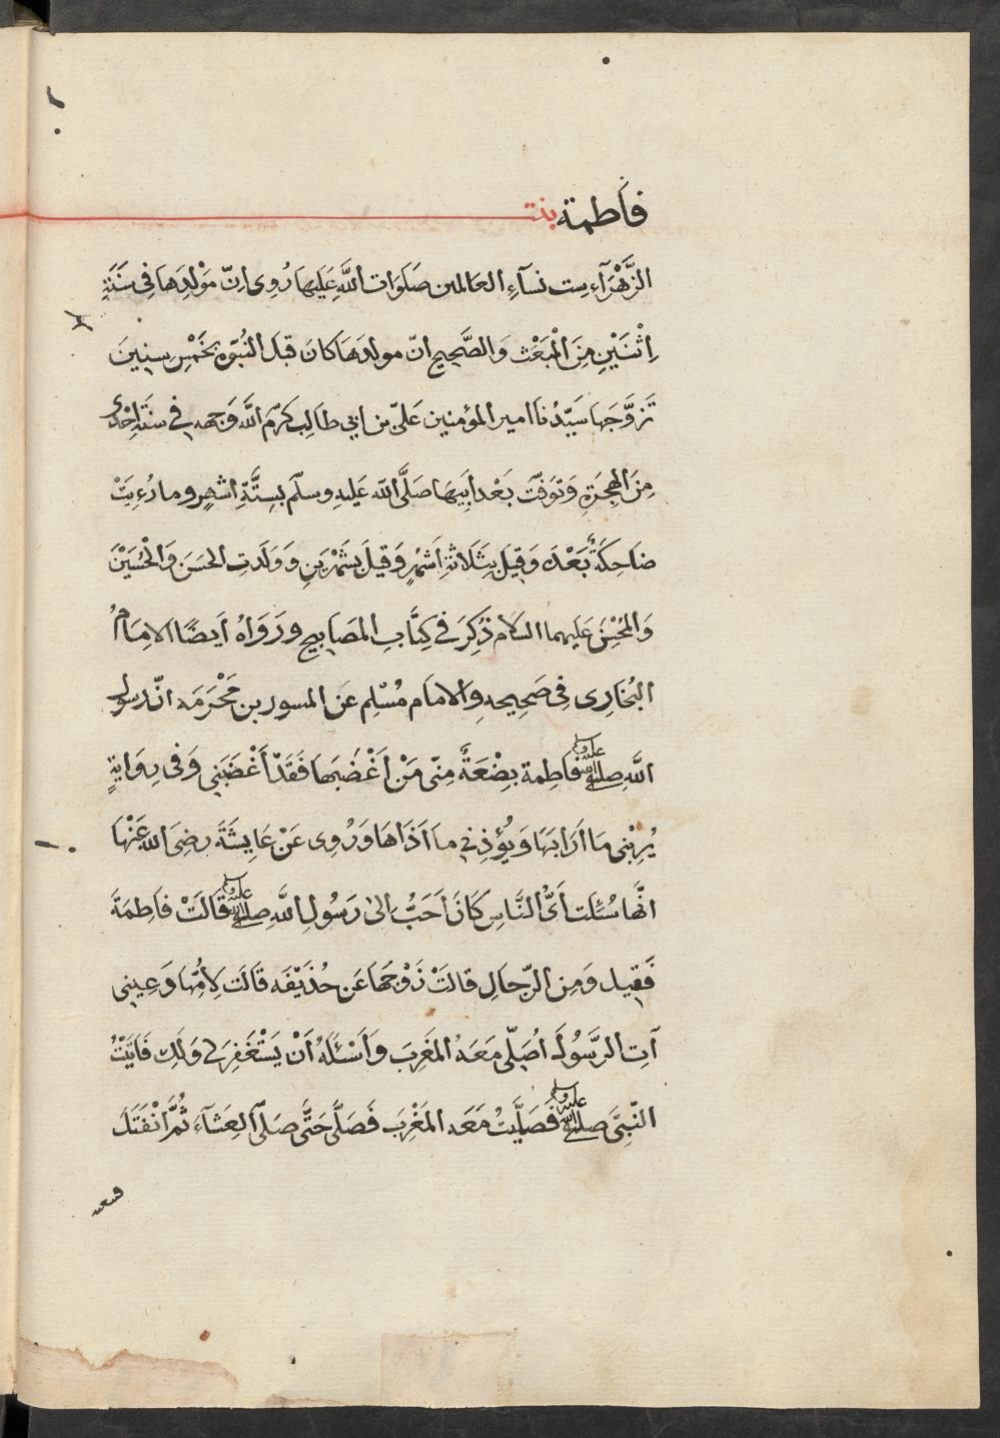 فاطمة بنت
الزَّهْرَآء ست نسآءِ العالمين صَلَوَات اللَّهِ عَلَيهَا رُوِى انّ مَوْلِدِهَا فِى سَنَةِ
اِثْنَيْنِ مِنَ الْمَبْعَثِ وَالصَّحِيح انّ مولدهَا كانَ قبلَ النُّبوّه بِخَمْسِ سِنِينَ
تَزوَّجَها سَيّدُنَا امير المؤمنين عَلىّ بن ابي طَالِب كَرّمَ اللَّه وَجهه فِي سنَة اِحْدَى
مِنَ الهِجرَةِ وَتوفّت بَعْد اَبِيهَا صَلَّى اللّه عَليهِ وسلّم بِستَّةِ اشهرٍ وما رُءِيَتْ
ضَاحِكَةً بَعْدَه وَقِيلَ بِثَلَاثَةِ اَشْهُرٍ وَقيلَ بشَهْرَينِ وَوَلَدَتِ الحَسَنَ وَالْحُسَيْنَ
وَالمُحْسِنَ عَلَيهما السَّلَام ذُكِرَ فِي كِتَابِ المصَابيح وَرَوَاهُ اَيضًا الامِامُ
البُخَارِى فِى صَحِيحهِ وَالامَام مُسْلِم عَن المسور بن مَخْرَمَه انّ رسول
اللَّهِ صلى الله عليه وسلم فَاطِمة بِضْعَةٌ مِنّى مَنْ اَغْضَبَهَا فَقَدْ أَغْضَبَنِى وَفى رِوَايةٍ
يُرِيْبُنِى مَا اَرَابَهَا وَيُؤْذِيني مَا اَذَاهَا وَرُوِى عَنْ عَايِشَةَ رضِىَ اللّه عَنْهَا
انَّهَا سُئلت أَىُّ النَّاسِ كَانَ اَحَبُّ اِلىٰ رَسُولِ اللَّهِ صلى الله عليه وسلم قَالَتْ فاطِمَةَ
فَقيل وَمِن الرّجالِ قالَتْ زَوْجهَا عَن حُذَيْفَه قَالَت لِأمّها وَعِينِى
آتِ الرَّسُولَ اُصَلّى مَعَهُ المَغرِبَ وَاَسْئَلَهُ أَنْ يَسْتَغفِرَ لى وَلَكِ فَاتَيْتُ
النّبِىَّ صلى الله عليه وسلم فَصَلَّيتُ مَعَه المَغْرِبَ فَصَلَّى حَتَّى صَلّى العِشَآءَ ثُمَّ انْفَتَلَ